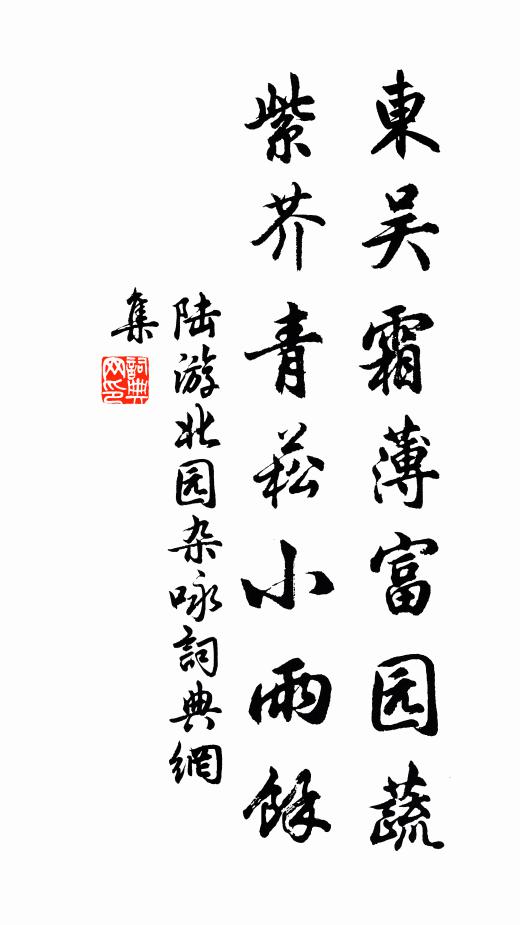 東吴霜薄富园蔬
紫芥青菘小雨餘
陆游北园杂咏詞典網
集
詞典
网印